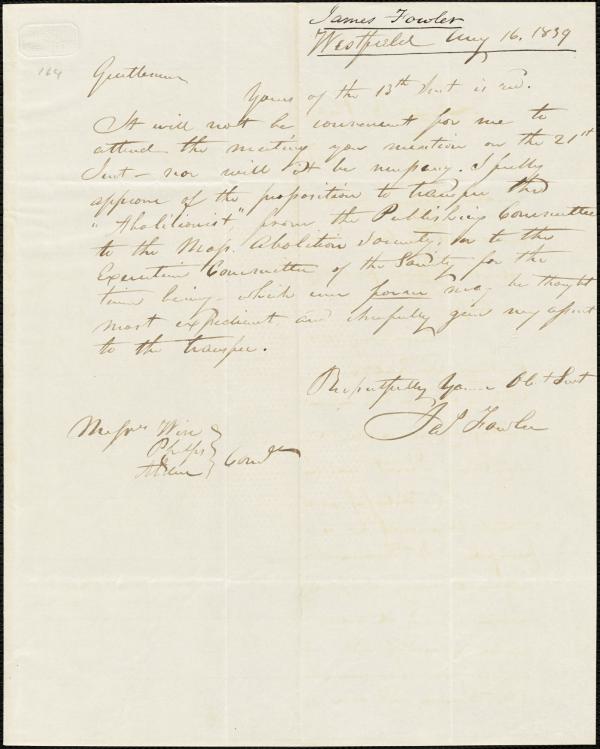 James Fowler
Westfield Aug 16, 1839
164
Gentlemen
Yours of the 13th Inst is recd.
It will not be convenient for me to
attend the meeting you mention on the 21st
Inst - nor will it be necessary. I fully
approve of the proposition to transfer the
"Abolitionist," from the Publishing Committee
to the Mass. Abolition Society, or to the
Executive Committee of the Society for the
time being - which ever form may be thought
most expedient, and cheerfully give my assent
to the transfer.
Respectfully Yours Obt Servt
Jas Fowler
Messrs Wise
Phelps
Comtee